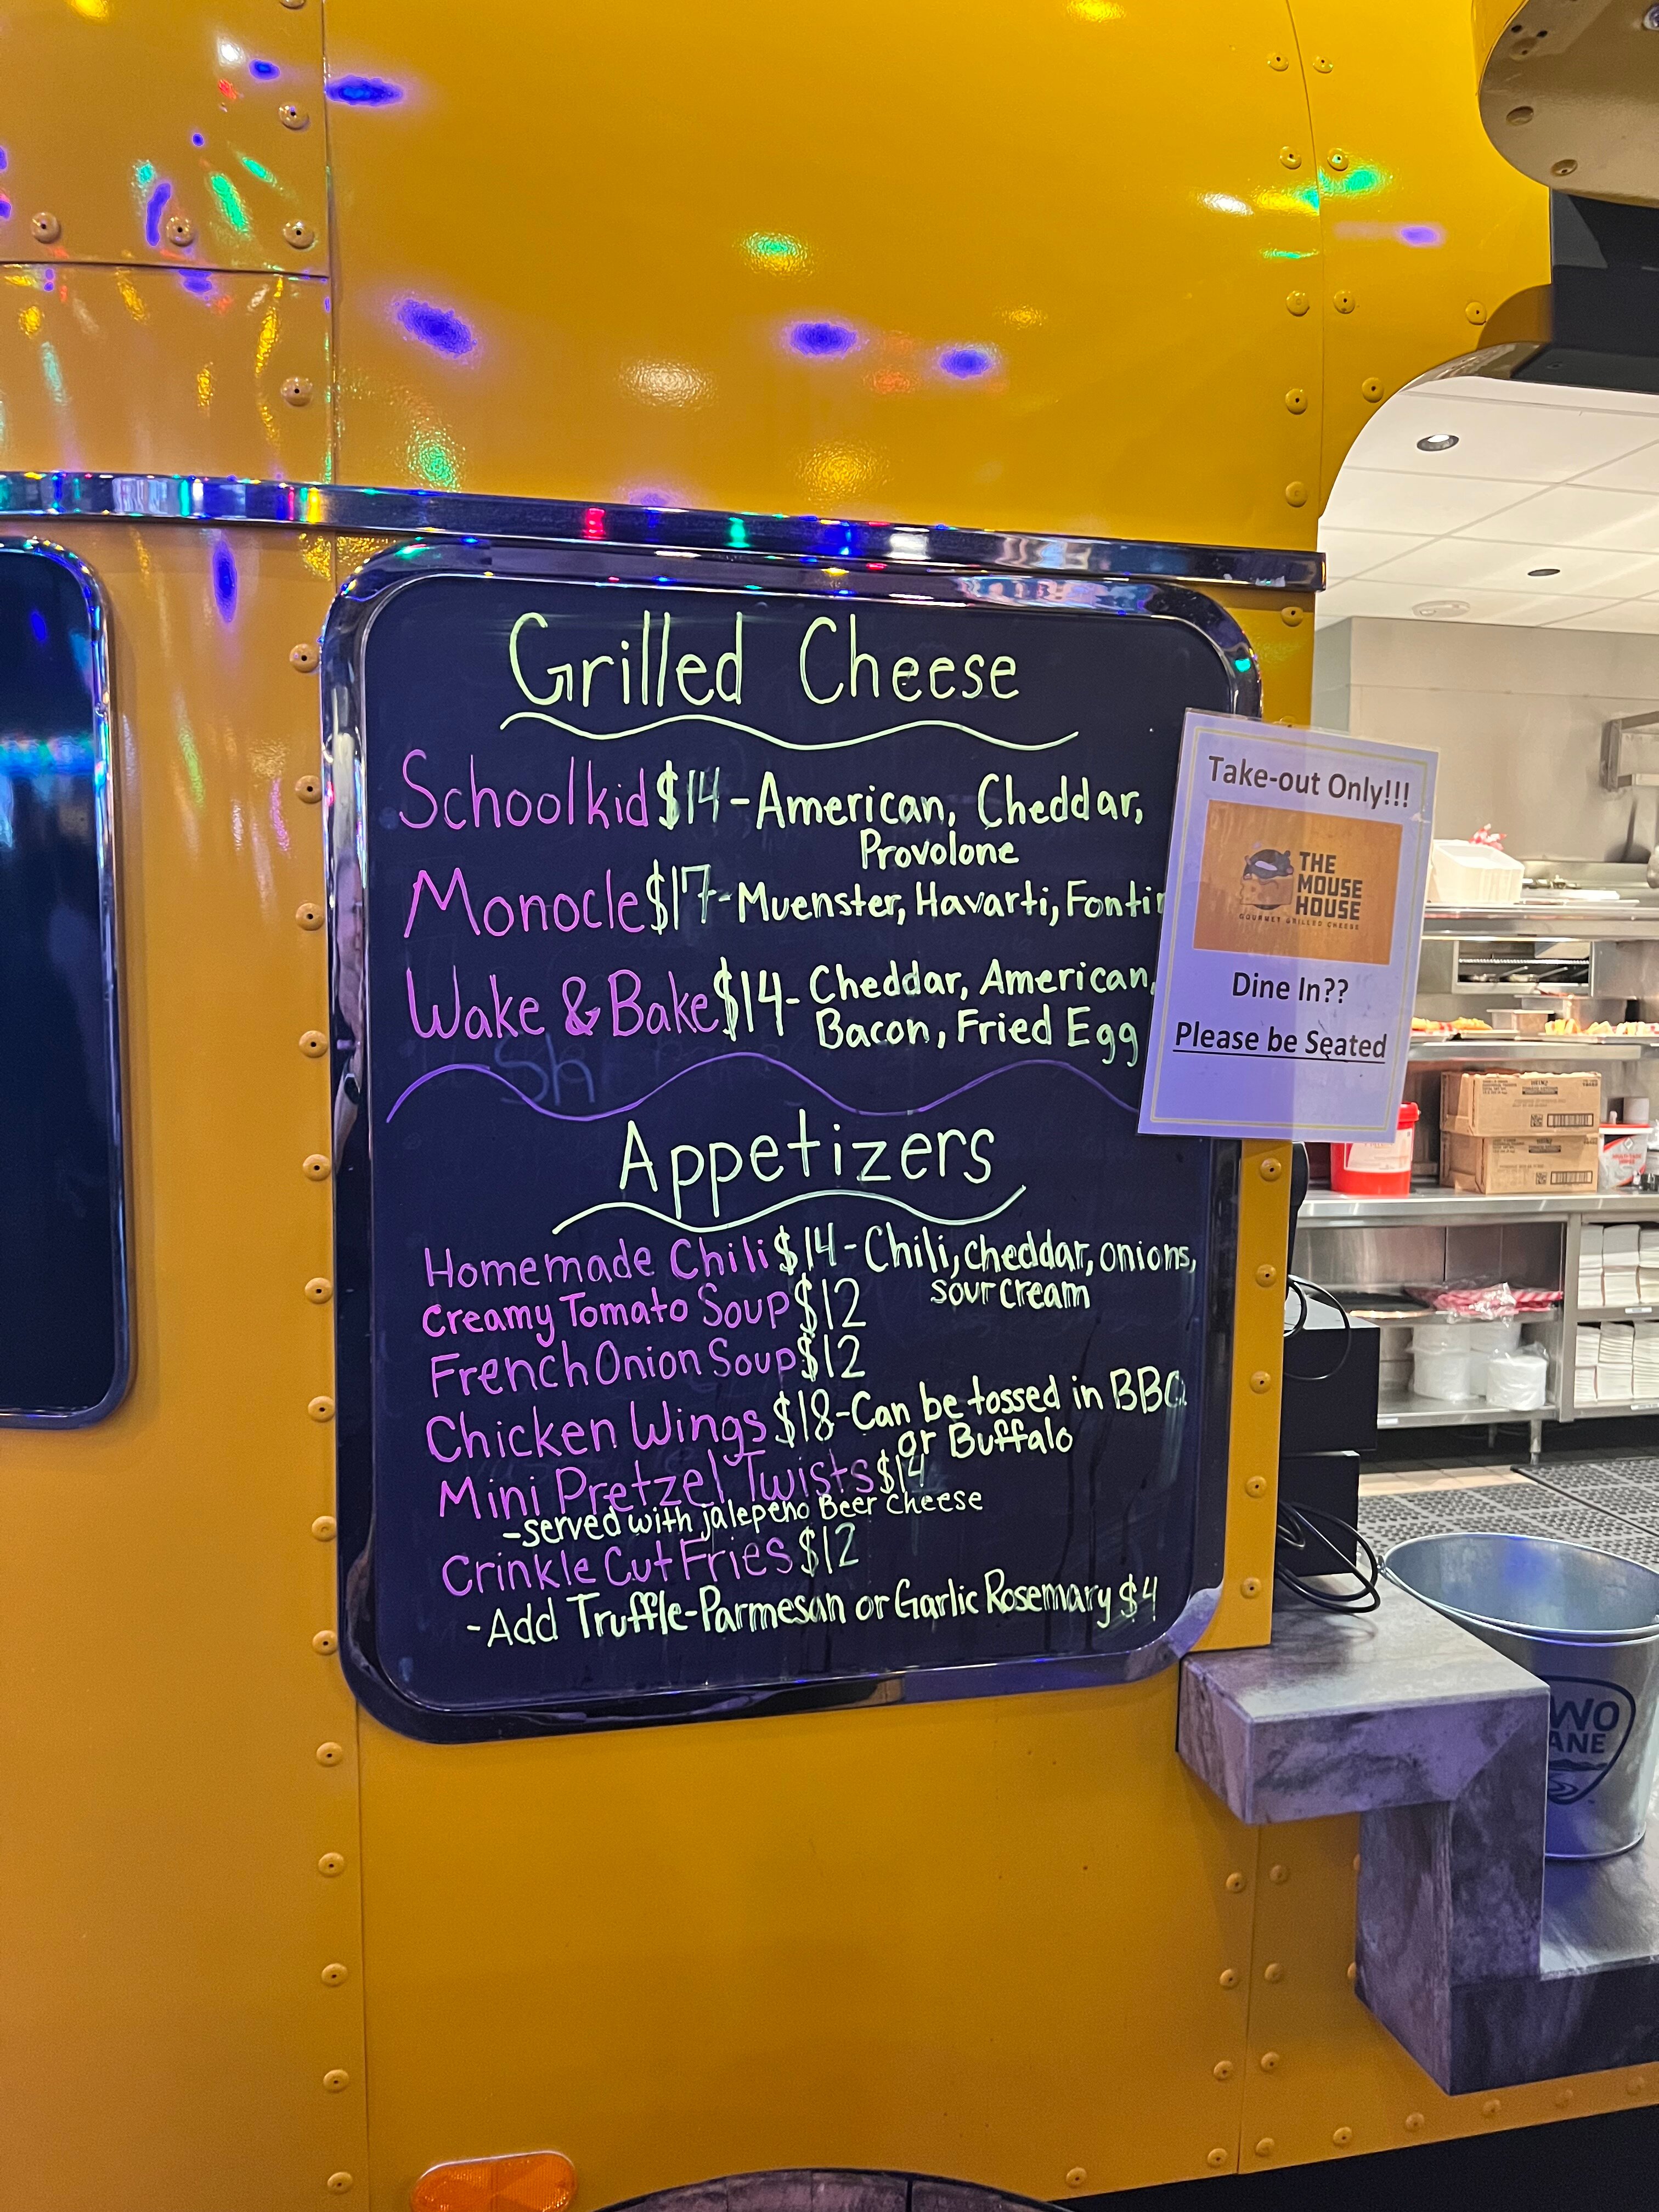 Grilled Cheese
Schoolkid $14 - American, Cheddar,
Provolone
Monocle $17 - Muenster, Havarti,
Wake & Bake $14 - Cheddar, American,
Bacon, Fried Egg
Sh
Appetizers
Homemade Chili $14 - Chili, cheddar, onions,
sour cream
Creamy Tomato Soup $12
French Onion Soup $12
Chicken Wings $18 - Can be tossed in BBQ
or Buffalo
Mini Pretzel Twists $14
- served with jalepeno Beer Cheese
Crinkle Cut Fries $12
- Add Truffle-Parmesan or Garlic Rosemary $4
Take-out Only!!!
THE
MOUSE
HOUSE
GOURMET GRILLED CHEESE
Dine In??
Please be Seated
HEINZ
HEINZ